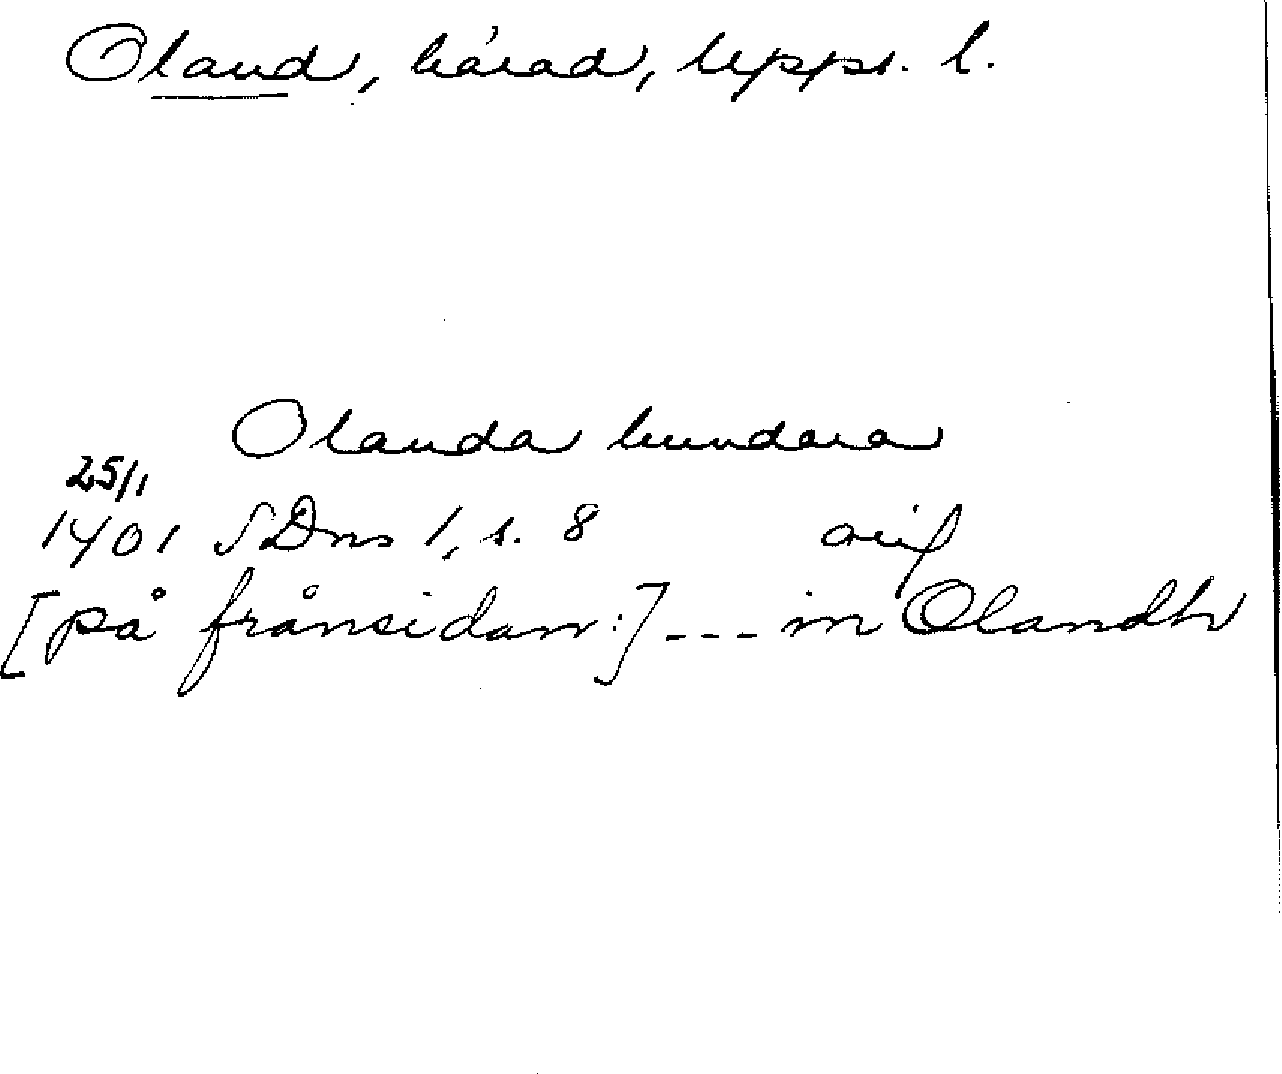 Oland, härad, Upps. l.
Olanda hundara
25/1
1401 SDns 1, s. 8 orig
[på frånsidan:] --- in Olandh